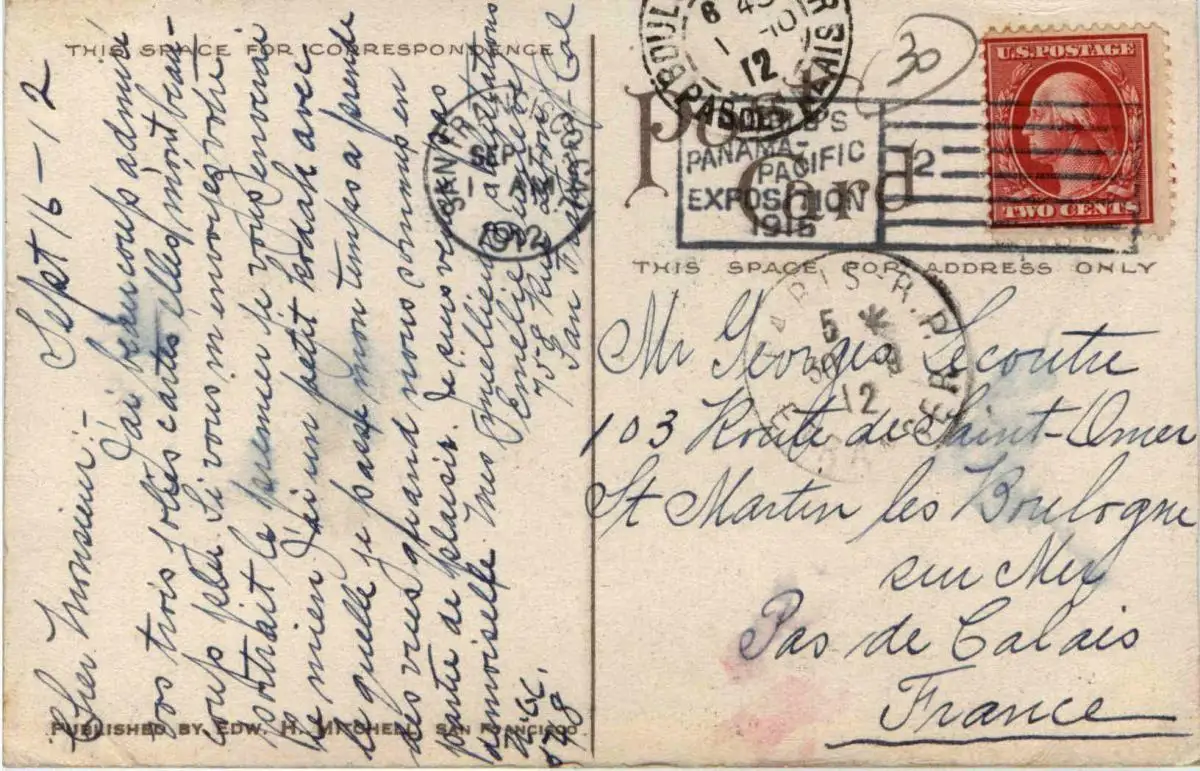 THIS SPACE FOR CORRESPONDENCE
Sept 16-12
Cher Monsieur:-
J'ai beaucoup admiré
vos trois jolies cartes elles m'ont beau-
coup plu. Si vous m'envoyez votre
portrait le premier je vous enverrai
le mien. J'ai un petit kodak avec
le quelle je passe mon temps a prendre
des vues quand nous sommes en
partie de plaisir. Je suis
damoiselle. Mes meilleures salutations
Emelie
San Cal
548
PUBLISHED BY EDW. H. MITCHELL, SAN FRANCISCO
Post Card
THIS SPACE FOR ADDRESS ONLY
30
U.S. POSTAGE
TWO CENTS
2
PANAMA-
PACIFIC
EXPOSITION
1915
SEP
AM
1912
12
PAS DE CALAIS
5
30 9
12
Mr Georges Lecoutre
103 Route de Saint-Omer
St Martin les Boulogne
sur Mer
Pas de Calais
France